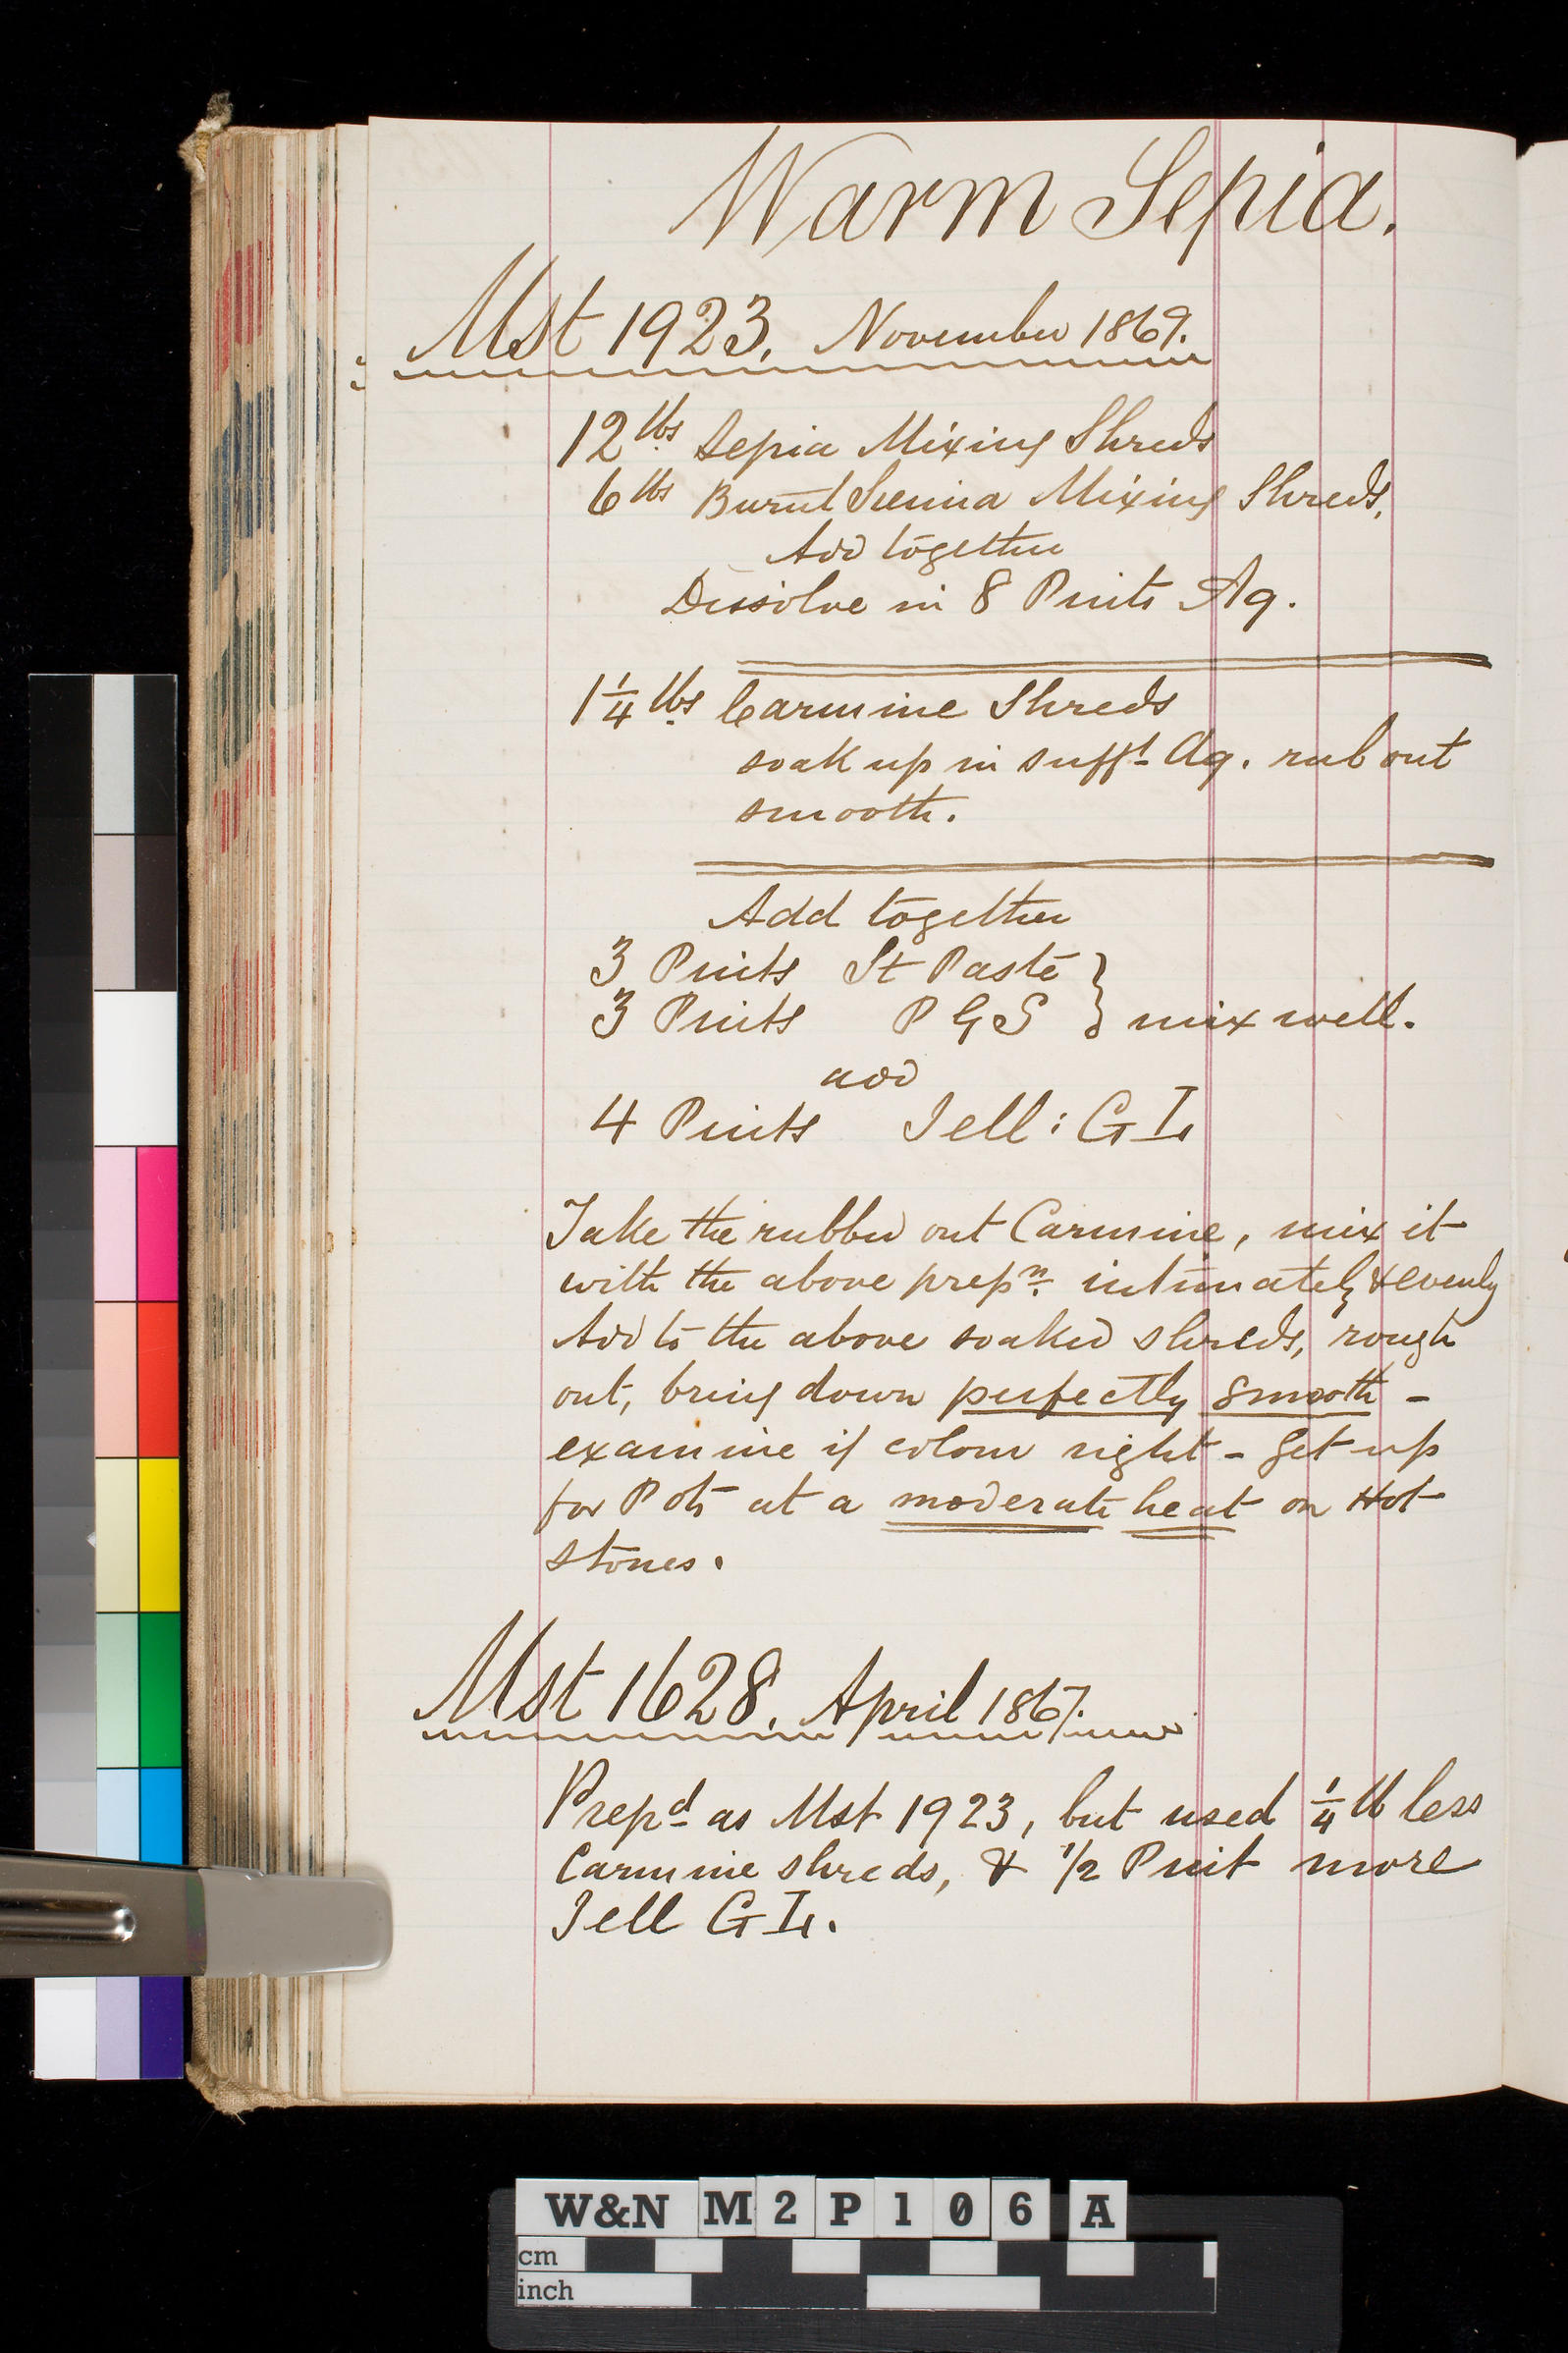 Warm Sepia.
Mst 1923. November 1869.
12 lbs Sepia Mixing Shreds
6 lbs Burnt Sienna Mixing Shreds.
Add together
Dissolve in 8 Pints Aq.
1 1/4 lbs Carmine Shreds
soak up in suff^t Aq. rub out
smooth.
Add together
3 Pints St Paste }
3 Pints P G S } mix well.
add
4 Pints Jell: G L
Take the rubbed out Carmine, mix it
with the above prep^n intimately & evenly
Add to the above soaked shreds, rough
out, bring down perfectly smooth -
examine if colour right - Get up
for Pots at a moderate heat on Hot
stones.
Mst 1628. April 1867.
Prep^d as Mst 1923, but used 1/4 lb less
Carmine shreds, & 1/2 Pint more
Jell G L.
W&N M2P106 A
cm
inch